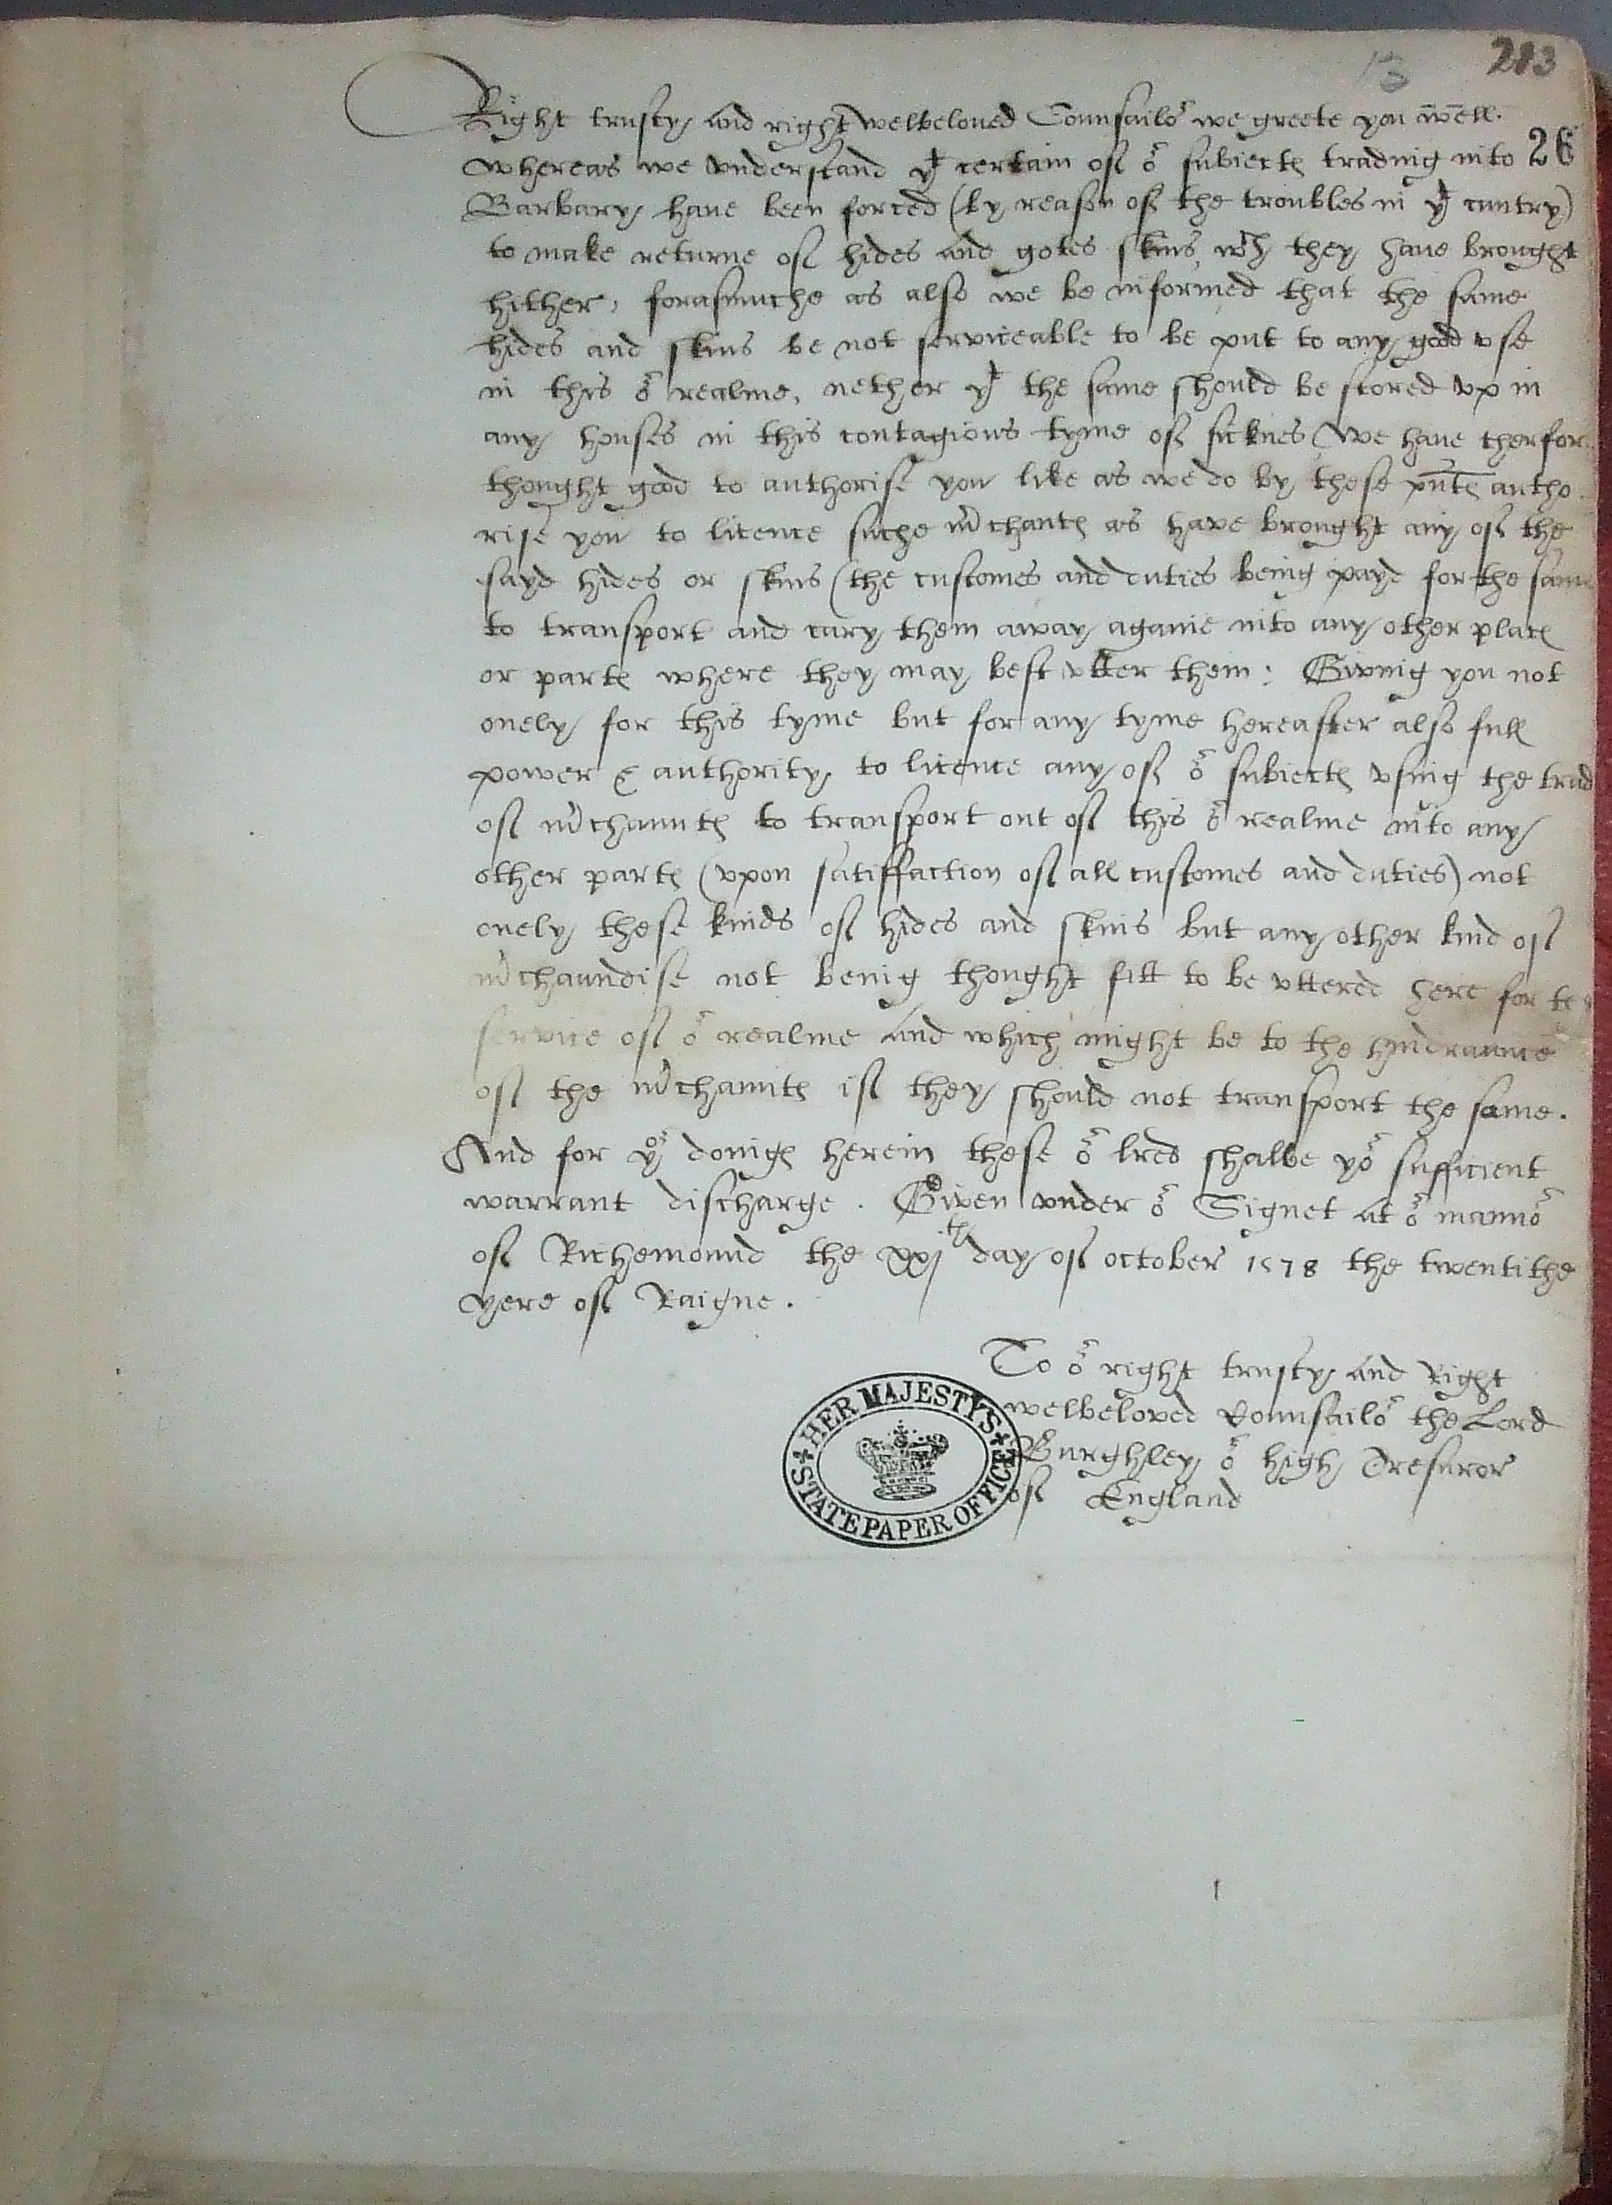 13 213
Right trusty and right welbeloued Counsailoʳ we greete you well.
whereas we vnderstand yᵗ certain of oʳ subiectꝭ trading into 26
Barbary haue been forced (by reason of the troubles in yᵗ cuntry)
to make returne of hides and gotes skins wᶜʰ they haue brought
hither, forasmuche as also we be informed that the same
hides and skins be not serviceable to be put to any good vse
in this oʳ realme, nether yᵗ the same should be stored vp in
any houses in this contagious tyme of sicknes, we haue therfor
thought good to authorise you like as we do by these pn̄tꝭ autho
rise you to licence suche mʳchantꝭ as have brought any of the
sayd hides or skins (the customes and duties being payd for the same
to transport and cary them away againe into any other placꝭ
or partꝭ where they may best vtter them: Giving you not
onely for this tyme but for any tyme hereafter also full
power & authority to licence any of oʳ subiectꝭ vsing the trad
of mʳchauntꝭ to transport out of this oʳ realme into any
other partꝭ (vpon satiffaction of all customes and duties) not
onely these kinds of hides and skins but any other kind of
mʳchaundise not being thought fitt to be vttered here for te
service of oʳ realme and which might be to the hindraunce
of the mʳchauntꝭ if they should not transport the same.
And for yoʳ doingꝭ herein these oʳ lres shalbe yoʳ sufficient
warrant discharge. Given vnder oʳ Signet at oʳ mannoʳ
of Richemound the xxjᵗʰ day of october 1578 the twentithe
yere of Raigne.
To oʳ right trusty and Right
welbeloved Counsailoʳ the Lord
Burghley oʳ high Tresuror
of England
HER MAJESTY'S
STATE PAPER OFFICE